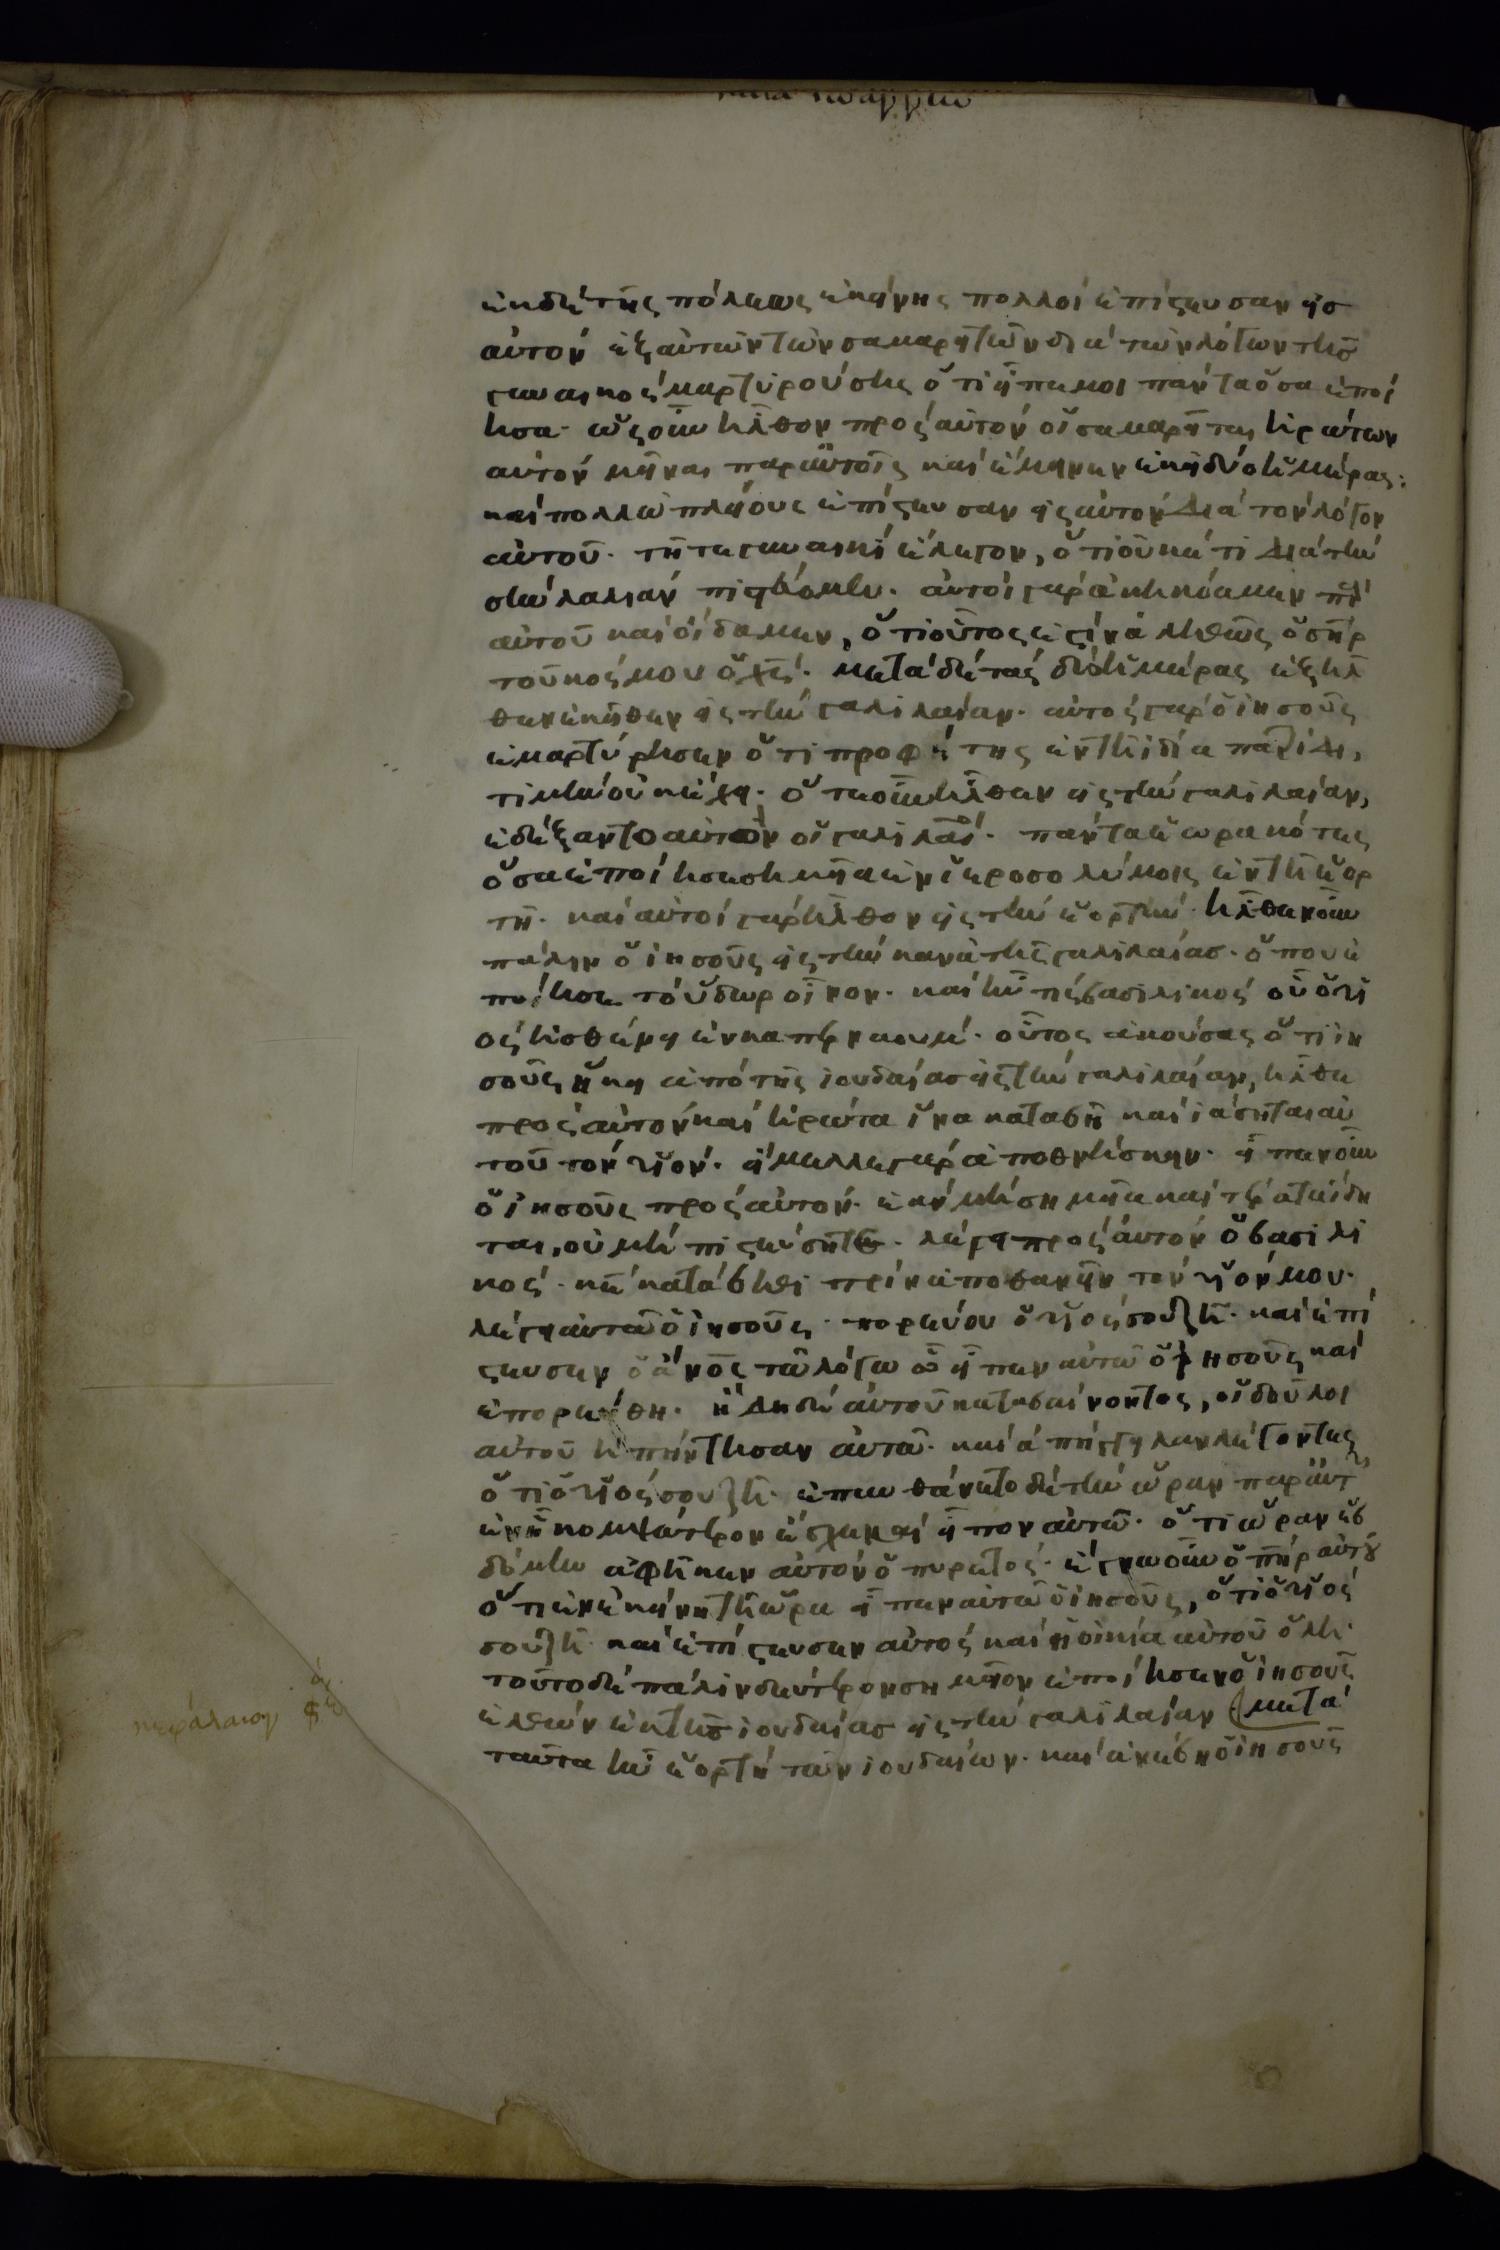 κατα ιωαννην
ἐκ δὲ τῆς πόλεως ἐκείνης πολλοὶ ἐπίστευσαν εἰσ
αὐτὸν ἐξ αὐτῶν τῶν σαμαρειτῶν διὰ τῶν λόγων τῆσ
γυναικὸς μαρτυρούσης ὅτι εἶπε μοι πάντα ὅσα ἐποί
ησα· ὡς οὖν ἦλθον πρὸς αὐτὸν οἱ σαμαρεῖται ἠρώτων
αὐτὸν μεῖναι παρ αὐτοῖς καὶ ἔμεινεν ἐκεῖ δύο ἡμέρας:
καὶ πολλῶ πλείους ἐπίστευσαν εἰς αὐτὸν διὰ τὸν λόγον
αὐτοῦ· τῆ τε γυναικὶ ἔλεγον, ὅτι οὐκέτι διὰ τὴν
σὴν λαλιὰν πιστεύομεν· αὐτοὶ γὰρ ἀκηκόαμεν παρ
αὐτοῦ καὶ οἴδαμεν, ὅτι οὗτος ἐστὶν ἀληθῶς ὁ σηρ
τοῦ κόσμου ὁ χς· μετὰ δὲ τὰς δύο ἡμέρας ἐξηλ
θεν ἐκεῖθεν εἰς τὴν γαλιλαίαν· αὐτὸς γὰρ ὁ ἰησοῦς
ἐμαρτύρησεν ὅτι προφήτης ἐν τῆ ἰδία πατρίδι,
τιμὴν οὐκ ἔχει· ὅτε οὖν ἦλθεν εἰς τὴν γαλιλαίαν,
ἐδέξαντο αὐτὸν οἱ γαλιλαῖοι· πάντα ἑωρακότες
ὅσα ἐποίησε σημεῖα ἐν ἱεροσολύμοις ἐν τῆ ἑορ
τῆ· καὶ αὐτοὶ γὰρ ἦλθον εἰς τὴν ἑορτήν· ἦλθεν οὖν
πάλιν ὁ ἰησοῦς εἰς τὴν κανὰ τῆς γαλιλαίασ· ὅπου ἐ
ποίησε τὸ ὕδωρ οἶνον· καὶ ἦν τις βασιλικὸς οὗ ὁ υἱ
ὸς ἠσθένει ἐν καπερναούμ· οὗτος ἀκούσας ὅτι ἰη
σοῦς ἥκει ἀπὸ τῆς ἰουδαίασ εἰς τὴν γαλιλαίαν, ἦλθε
πρὸς αὐτὸν καὶ ἠρώτα ἵνα καταβῆ καὶ ἰάσηται αὐ
τοῦ τὸν υἱόν· ἤμελλε γὰρ ἀποθνήσκειν· εἶπεν οὖν
ὁ ἰησοῦς πρὸς αὐτόν· ἐὰν μὴ σημεῖα καὶ τέρατα ἴδη
ται, οὐ μὴ πιστεύσητε· λέγει πρὸς αὐτὸν ὁ βασιλι
κός· κε κατάβηθι πρὶν ἀποθανεῖν τὸν υἱόν μου·
λέγει αὐτῶ ὁ ἰησοῦς· πορεύου ὁ υἱός σου ζῆ· καὶ ἐπί
στευσεν ὁ ἄνος τῶ λόγω ὧ εἶπεν αὐτῶ ὁ ἰησοῦς καὶ
ἐπορεύθη· ἤδη δὲ αὐτοῦ καταβαίνοντος, οἱ δοῦλοι
αὐτοῦ ἠπήντησαν αὐτῶ· καὶ ἀπήγγειλαν λέγοντες
ὅτι ὁ υἱός σου ζῆ· ἐπυνθάνετο δὲ τὴν ὥραν παρ αὐτ
ἐν ἧ κομψότερον ἔσχε καὶ εἶπον αὐτῶ· ὅτι ὥραν ἑβ
δόμην ἀφῆκεν αὐτὸν ὁ πυρετός· ἔγνω οὖν ὁ πηρ αὐτοῦ
ὅτι ἐν ἐκείνη τῆ ὥρα εἶπεν αὐτῶ ὁ ἰησοῦς, ὅτι ὁ υἱός
σου ζῆ· καὶ ἐπίστευσεν αὐτὸς καὶ ἡ οἰκία αὐτοῦ ὅλη·
τοῦτο δὲ πάλιν δεύτερον σημεῖον ἐποίησεν ὁ ἰησοῦς
ἐλθὼν ἐκ τῆσ ἰουδαίασ εἰς τὴν γαλιλαίαν μετὰ
κεφάλαιον
ταῦτα ἦν ἑορτὴ τῶν ἰουδαίων· καὶ ἀνέβη ὁ ἰησοῦς